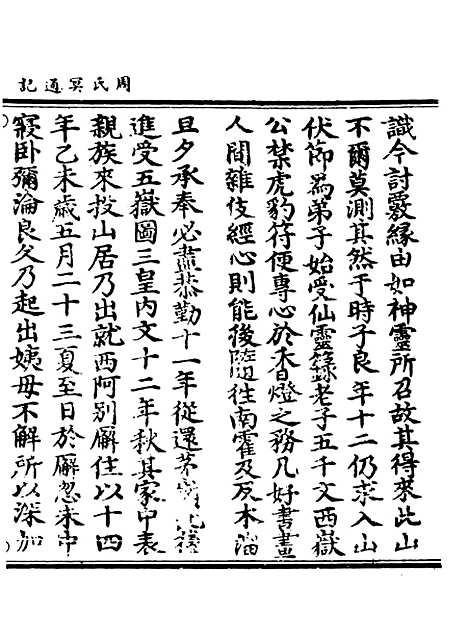 周氏冥通記
識今討覈緣由如神靈所召故其得來此山
不爾莫測其然于時子良年十二仍求入山
伏節為弟子始受仙靈籙老子五千文西嶽
公禁虎豹符便專心於香燈之務凡好書畫
人間雜伎經心則能後隨往南霍及反木溜
旦夕承奉必盡恭勤十一年從還茅
進受五嶽圖三皇內文十二年秋其家中表
親族來投山居乃出就西阿別廨住以十四
年乙未歲五月二十三夏至日於廨忽未中
寢臥彌淪良久乃起出姨母不解所以深加